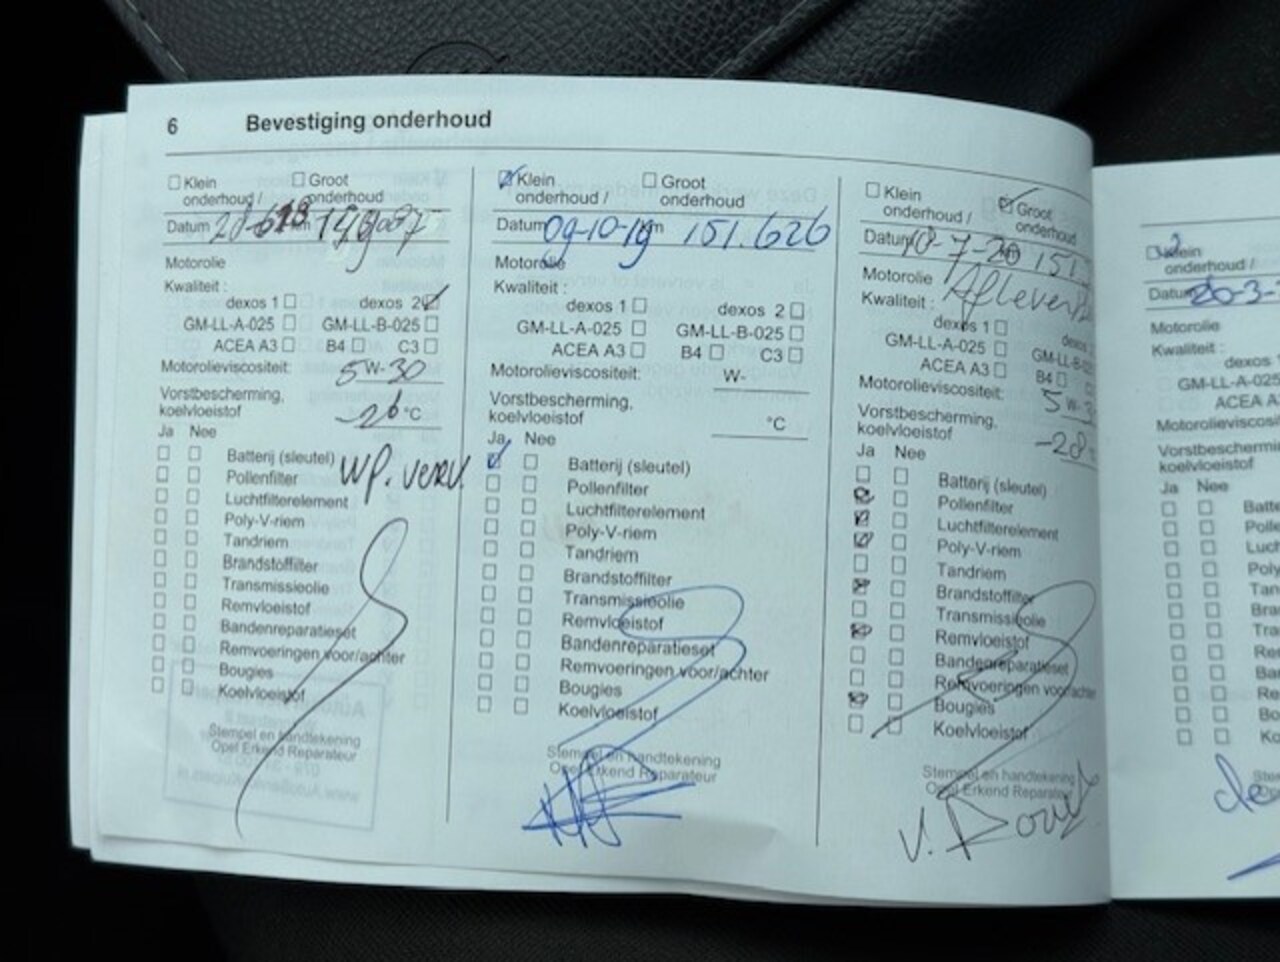 6 Bevestiging onderhoud
Klein onderhoud / Groot onderhoud
Datum km
Motorolie
Kwaliteit :
dexos 1 dexos 2
GM-LL-A-025 GM-LL-B-025
ACEA A3 B4 C3
Motorolieviscositeit: 5 W-30
Vorstbescherming,
koelvloeistof -26 °C
Ja Nee
Batterij (sleutel)
WP. verv
Pollenfilter
Luchtfilterelement
Poly-V-riem
Tandriem
Brandstoffilter
Transmissieolie
Remvloeistof
Bandenreparatieset
Remvoeringen voor/achter
Bougies
Koelvloeistof
Stempel en handtekening
Opel Erkend Reparateur
Klein onderhoud / Groot onderhoud
Datum 09-10-19 km 151.626
Motorolie
Kwaliteit :
dexos 1 dexos 2
GM-LL-A-025 GM-LL-B-025
ACEA A3 B4 C3
Motorolieviscositeit: W-
Vorstbescherming,
koelvloeistof °C
Ja Nee
Batterij (sleutel)
Pollenfilter
Luchtfilterelement
Poly-V-riem
Tandriem
Brandstoffilter
Transmissieolie
Remvloeistof
Bandenreparatieset
Remvoeringen voor/achter
Bougies
Koelvloeistof
Stempel en handtekening
Opel Erkend Reparateur
Klein onderhoud / Groot onderhoud
Datum 10-7-20 151.
Motorolie
Kwaliteit :
dexos 1 dexos
GM-LL-A-025 GM-LL-B-02
ACEA A3 B4
Motorolieviscositeit: 5 W-3
Vorstbescherming,
koelvloeistof -28
Ja Nee
Batterij (sleutel)
Pollenfilter
Luchtfilterelement
Poly-V-riem
Tandriem
Brandstoffilter
Transmissieolie
Remvloeistof
Bandenreparatieset
Remvoeringen voor/achter
Bougies
Koelvloeistof
Stempel en handtekening
Opel Erkend Reparateur
Klein
onderhoud /
Datum 26-3-
Motorolie
Kwaliteit :
dexos
GM-LL-A-025
ACEA A
Motorolieviscosite
Vorstbeschermin
koelvloeistof
Ja Nee
Batte
Polle
Luch
Poly
Tan
Bra
Tra
Re
Ba
Re
Bo
Ko